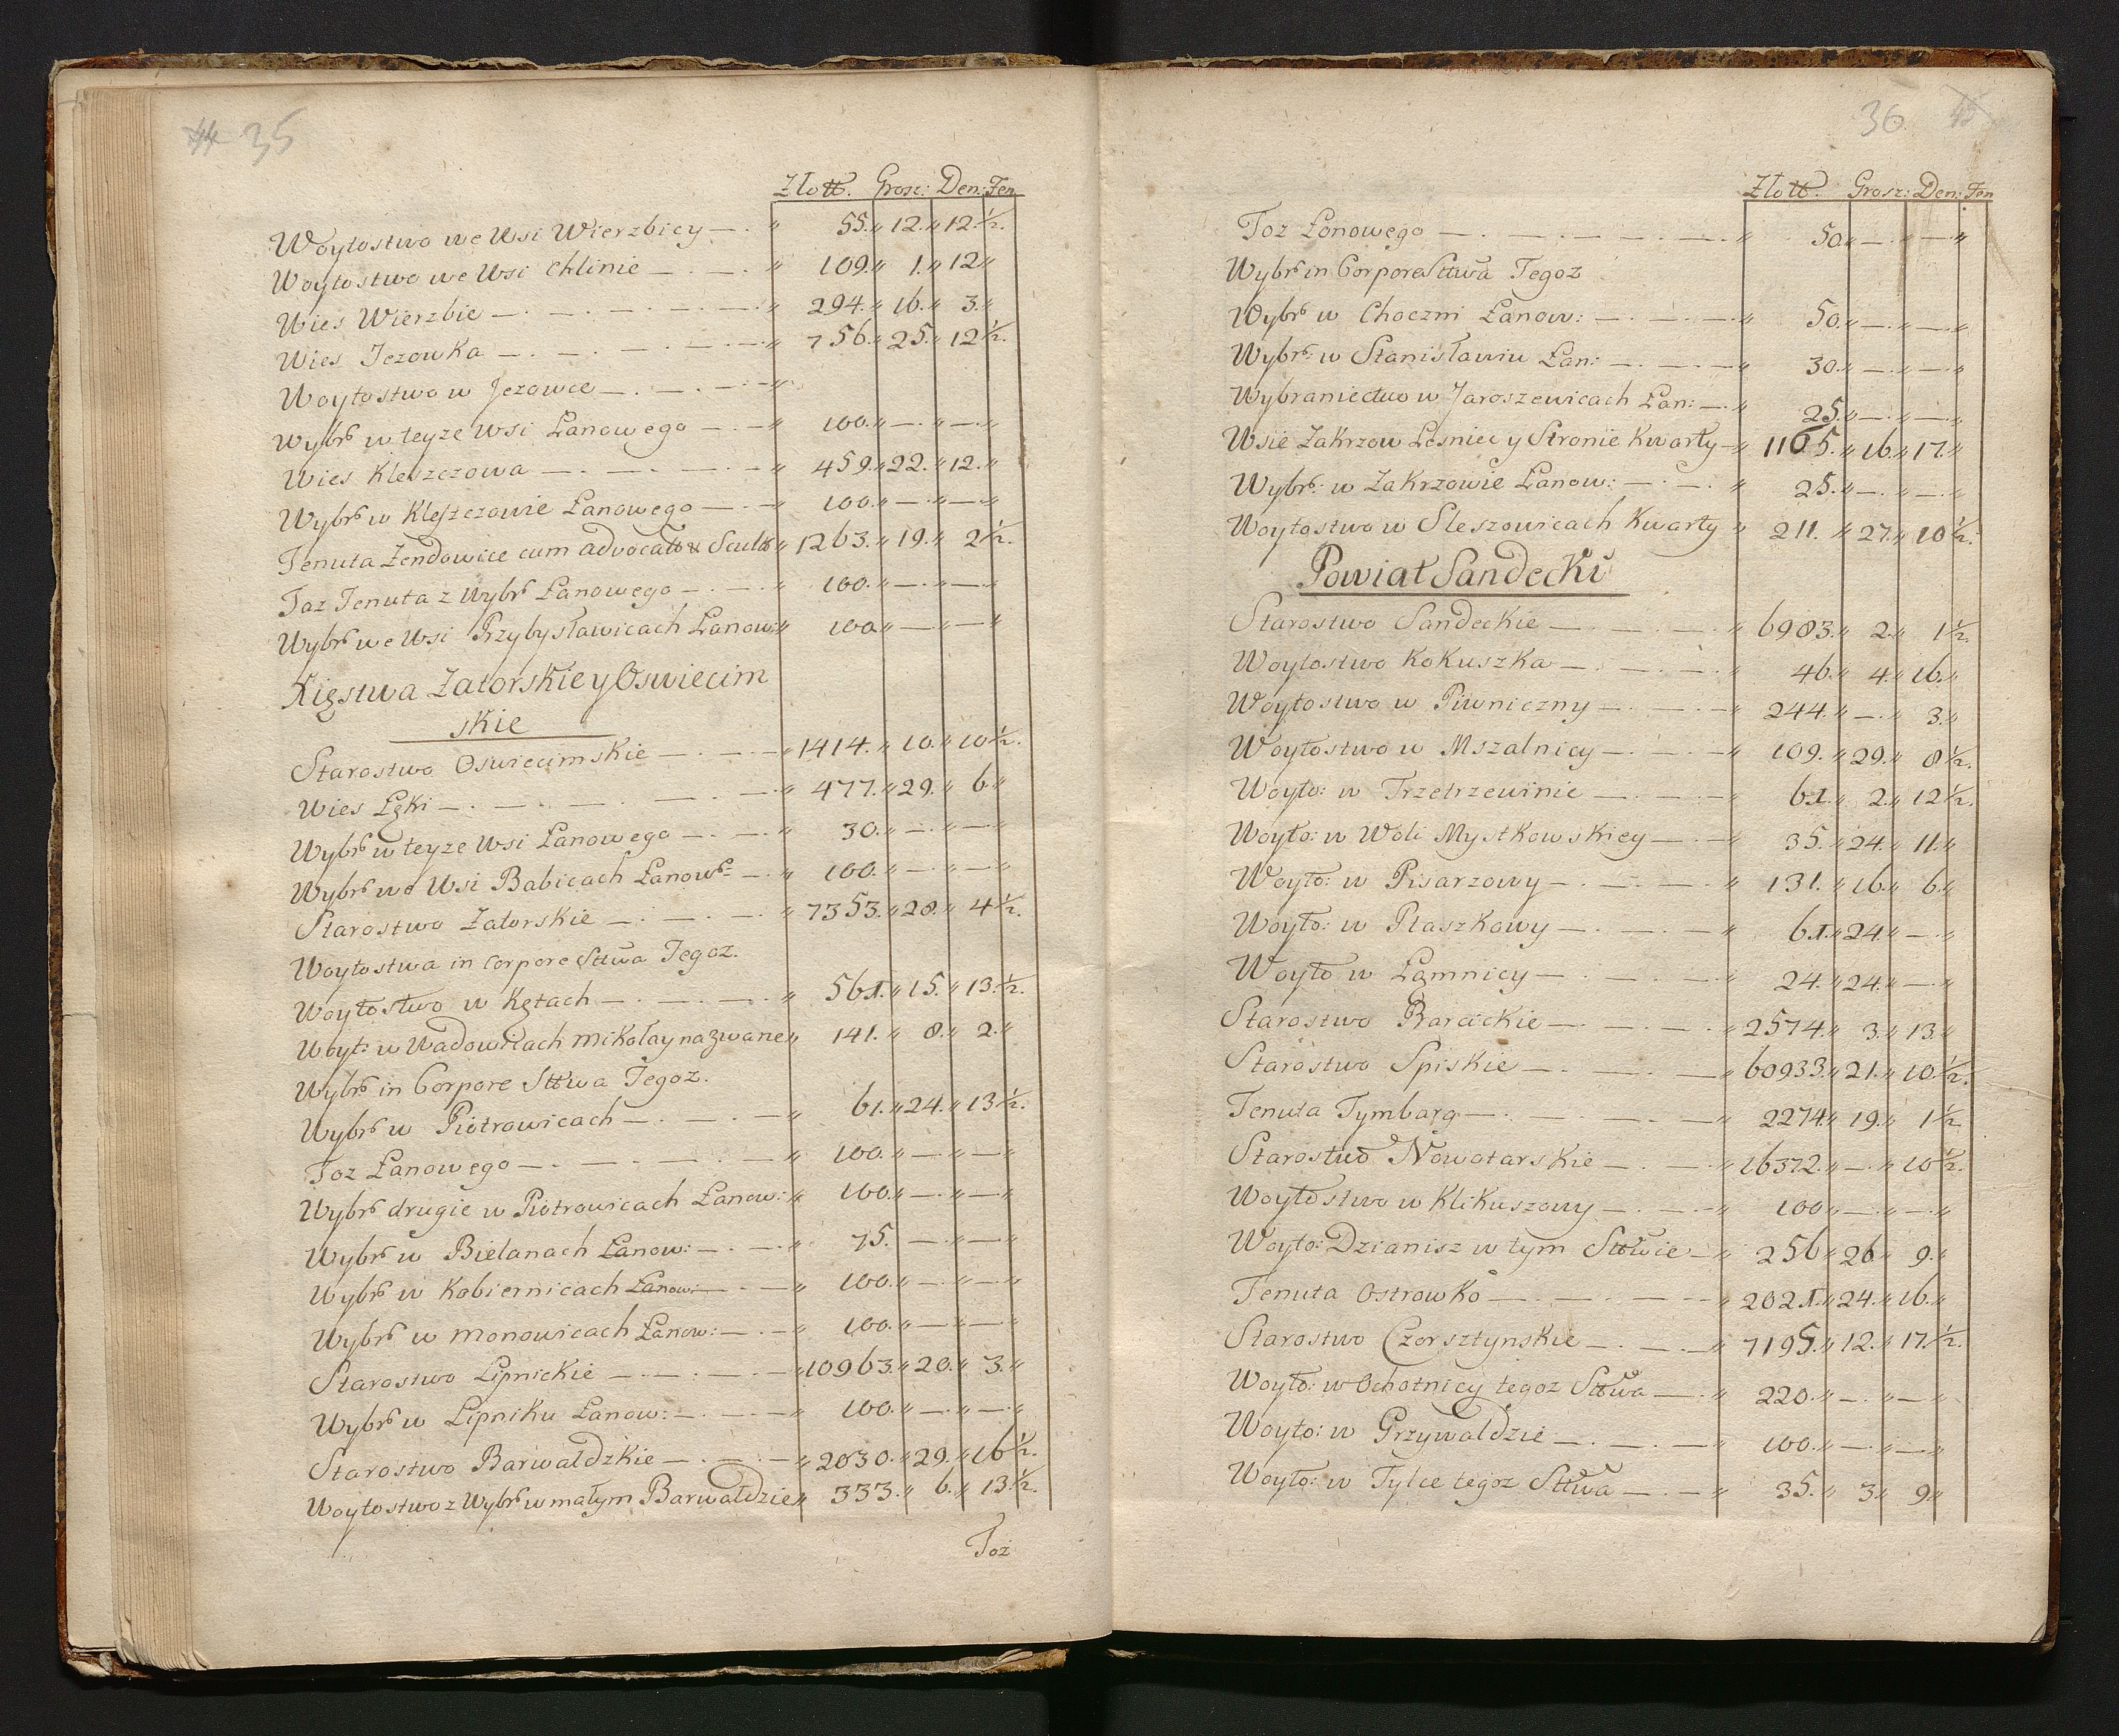 44 35
Złott. Grosz: Den: Fen
Woytostwo we Wsi Wierzbicy — . „ 55. „ 12. „ 12. ½.
Woytostwo we Wsi Chlinie — . — . „ 109. „ 1. „ 12 „
Wies Wierzbie — . — . — . — . „ 294. „ 16. „ 3. „
Wies Jezowka — . — . — . — . „ 756. „ 25. „ 12 ½.
Woytostwo w Jezowce — . — . — „
Wybrs w teyze Wsi Łanowego — . — „ 100. „ — . „ — . „
Wies Kleszczowa — . — . — . — „ 459. „ 22. „ 12. „
Wybrs w Kleszczowie Łanowego — . — „ 100. „ — . „ — . „
Tenuta Zendowice cum advocatt & Scultt „ 1263. „ 19. „ 2 ½.
Taz Tenuta z Wybrs Łanowego — . — . „ 100. „ — . „ — . „
Wybrs we Wsi Przybysławicach Łanow: „ 100 „ — . „ — . „
Xięstwa Zatorskie y Oswiecim
skie
Starostwo Oswiecimskie — . — . — „ 1414. „ 10. „ 10 ½.
Wies Łęki — . — . — . — . — „ 477. „ 29. „ 6. „
Wybrs w teyze Wsi Łanowego — . — . „ 30. „ — . „ — . „
Wybrs we Wsi Babicach Łanows — . „ 100. „ — . „ — . „
Starostwo Zatorskie — . — . — . „ 7353. „ 28. „ 4 ½.
Woytostwa in Corpore Sttwa Tegoz.
Woytostwo w Kętach — . — . — . „ 561. „ 15. „ 13. ½.
Woyt: w Wadowicach Mikołay nazwane „ 141. „ 8. „ 2. „
Wybrs in Corpore Sttwa Tegoz.
Wybrs w Piotrowicach — . — . — „ 61. „ 24. „ 13 ½.
Toz Łanowego — . — . — . — „ 100. „ — . „ — . „
Wybrs drugie w Piotrowicach Łanow: „ 100. „ — . „ — . „
Wybrs w Bielanach Łanow: — . — . „ 75. — . „ — . „
Wybrs w Kobiernicach Łanow: — . — „ 100. „ — . „ — . „
Wybrs w Monowicach Łanow: — . — „ 100. „ — . „ — . „
Starostwo Lipnickie — . — . — . — „ 10963. „ 20. „ 3. „
Wybrs w Lipniku Łanow: — . — . — „ 100. „ — . „ — . „
Starostwo Barwaldzkie — . — . — „ 2030. „ 29. „ 16 ½.
Woytostwo z Wybrs w małym Barwałdzie „ 333. „ 6. „ 13 ½.
Toz
36 45
Złott. Grosz: Den: Fen
Toz Łonowego — . — . — . — . — . „ 50. „ — . „ — . „
Wybrs in Corpore Sttwa Tegoz
Wybrs w Choczni Łanow: — . — . — „ 50. „ — . „ — . „
Wybrs: w Stanisławiu Łan: — . — . — „ 30. „ — . „ — . „
Wybraniectwo w Jaroszewicach Łan: — . „ 25. „ — . „ — . „
Wsie Zakrzow Lesniec y Stronie Kwarty — „ 1105. „ 16. „ 17. „
Wybrs: w Zakrzowie Łanow: — . — . „ 25. „ — . „ — . „
Woytostwo w Sleszowicach Kwarty „ 211. „ 27. „ 10 ½.
Powiat Sandecki
Starostwo Sandeckie — . — . — . „ 6983. „ 2. „ 1 ½.
Woytostwo Kokuszka — . — . — . „ 46. „ 4. „ 16. „
Woytostwo w Piwniczny — . — . — „ 244. „ — . „ 3. „
Woytostwo w Mszalnicy — . — . — „ 109. „ 29. „ 8 ½.
Woyto: w Trzetrzewinie — . — . — „ 61. „ 2. „ 12 ½.
Woyto: w Woli Mystkowskiey — . — „ 35. „ 24. „ 11. „
Woyto: w Pisarzowy — . — . — . „ 131. „ 16. „ 6. „
Woyto: w Ptaszkowy — . — . — „ 61. „ 24. „ — . „
Woyto w Łomnicy — . — . — . „ 24. „ 24. „ — . „
Starostwo Barcickie — . — . — . „ 2574. „ 3. „ 13. „
Starostwo Spiskie — . — . — „ 60933. „ 21. „ 10 ½.
Tenuta Tymbarg — . — . — . — „ 2274. „ 19. „ 1 ½
Starostwo Nowotarskie — . — . „ 16372. „ — . „ 10 ½.
Woytostwo w Klikuszowy — . — . — „ 100 „ — . „ — . „
Woyto: Dzianisz w tym Sttwie — „ 256 „ 26 „ 9. „
Tenuta Ostrowko — . — . — . — „ 2021. „ 24. „ 16. „
Starostwo Czorsztynskie — . — . — „ 7195. „ 12. „ 17. ½.
Woyto: w Ochotnicy tegoz Sttwa — . „ 220. „ — . „ — . „
Woyto: w Grzywałdzie — . — . — „ 100. „ — . „ — . „
Woyto: w Tylce tegoz Sttwa — . — „ 35. „ 3. „ 9. „